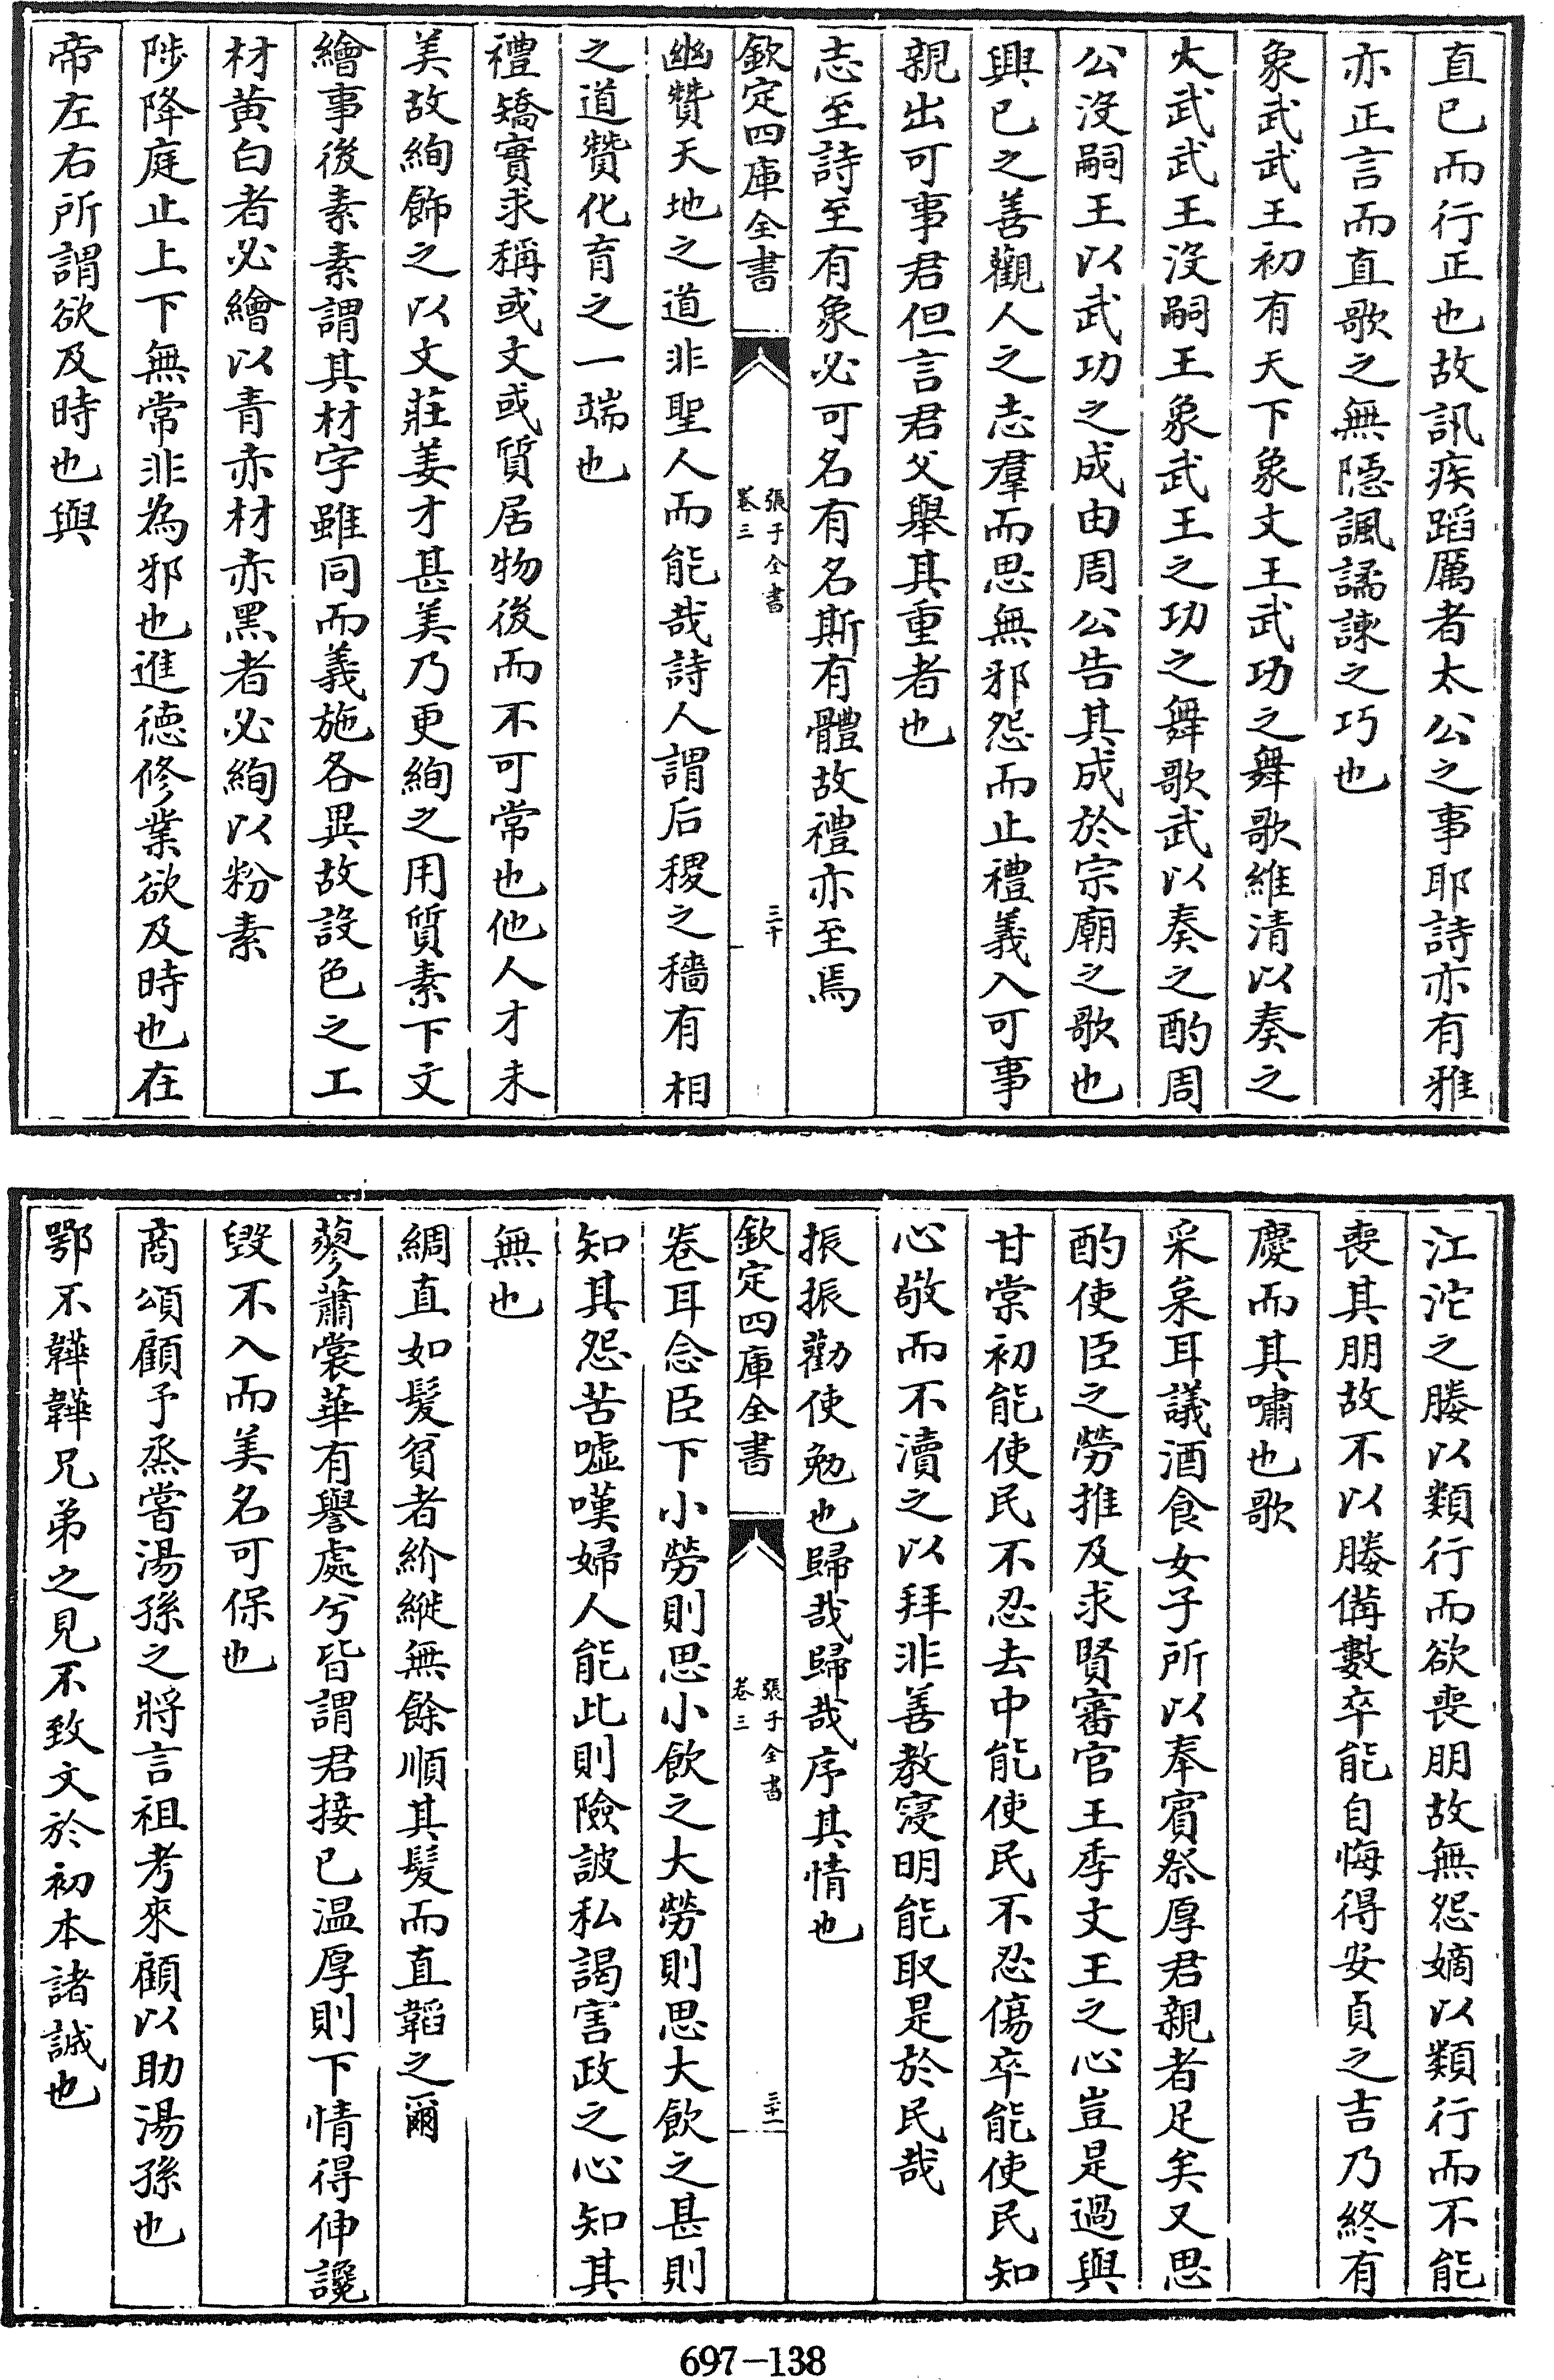 直已而行正也故訊疾蹈厲者太公之事耶詩亦有雅
亦正言而直歌之無隱諷譎諫之巧也
象武武王初有天下象文王武功之舞歌維清以奏之
大武武王没嗣王象武王之功之舞歌武以奏之酌周
公没嗣王以武功之成由周公告其成於宗廟之歌也
興已之善觀人之志羣而思無邪怨而止禮義入可事
親出可事君但言君父舉其重者也
志至詩至有象必可名有名斯有體故禮亦至焉
欽定四庫全書
張子全書
卷三
三十
幽贊天地之道非聖人而能哉詩人謂后稷之穡有相
之道贊化育之一端也
禮矯實求稱或文或質居物後而不可常也他人才未
美故絢飾之以文莊姜才甚美乃更絢之用質素下文
繪事後素素謂其材字雖同而義施各異故設色之工
材黄白者必繪以青赤材赤黑者必絢以粉素
陟降庭止上下無常非為邪也進德修業欲及時也在
帝左右所謂欲及時也與
江沱之媵以類行而欲喪朋故無怨嫡以類行而不能
喪其朋故不以媵備數卒能自悔得安貞之吉乃終有
慶而其嘯也歌
采枲耳議酒食女子所以奉賓祭厚君親者足矣又思
酌使臣之勞推及求賢審官王季文王之心豈是過與
甘棠初能使民不忍去中能使民不忍傷卒能使民知
心敬而不瀆之以拜非善教寖明能取是於民哉
振振勸使勉也歸哉歸哉序其情也
欽定四庫全書
張子全書
卷三
三十一
卷耳念臣下小勞則思小飲之大勞則思大飲之甚則
知其怨苦嘘嘆婦人能此則險詖私謁害政之心知其
無也
綢直如髮貧者紒縰無餘順其髮而直韜之爾
蓼蕭裳華有譽處兮皆謂君接已温厚則下情得伸讒
毁不入而美名可保也
商頌顧予烝嘗湯孫之將言祖考來顧以助湯孫也
鄂不韡韡兄弟之見不致文於初本諸誠也
697-138